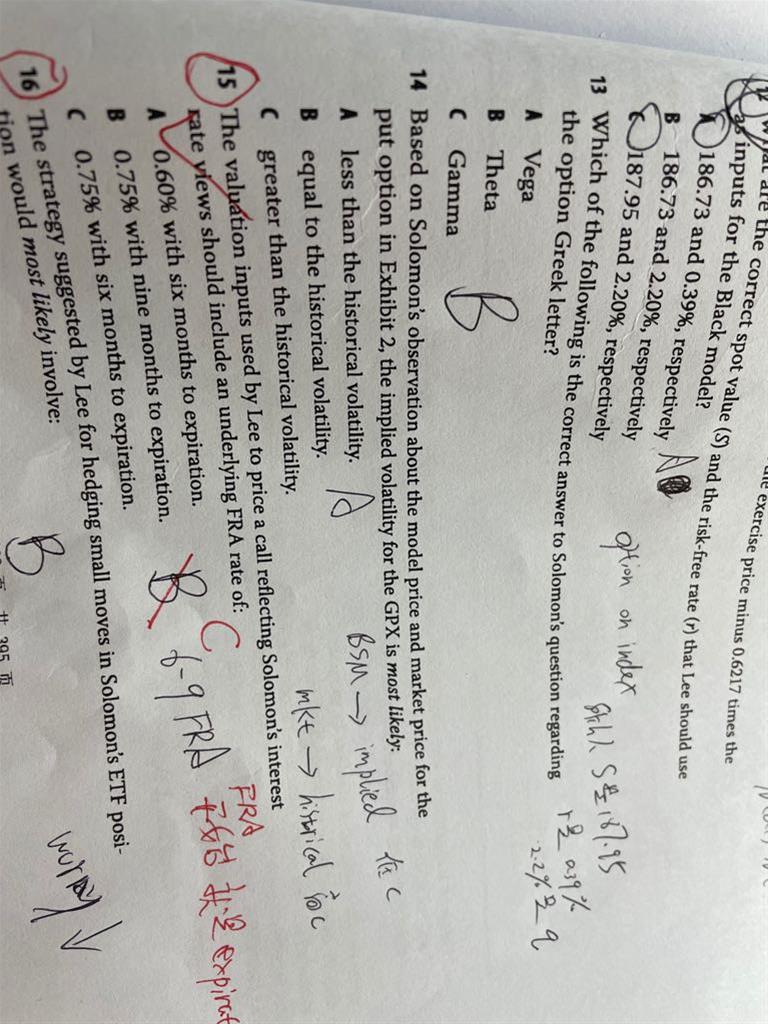 the exercise price minus 0.6217 times the
12 What are the correct spot value (S) and the risk-free rate (r) that Lee should use
as inputs for the Black model?
A 186.73 and 0.39%, respectively
B 186.73 and 2.20%, respectively
C 187.95 and 2.20%, respectively
A
option on index
S是187.95
r是0.39%
2.2%是q
13 Which of the following is the correct answer to Solomon's question regarding
the option Greek letter?
A Vega
B Theta
C Gamma
B
14 Based on Solomon's observation about the model price and market price for the
put option in Exhibit 2, the implied volatility for the GPX is most likely:
A less than the historical volatility.
B equal to the historical volatility.
C greater than the historical volatility.
A
BSM → implied 低C
mkt → historical 高C
15 The valuation inputs used by Lee to price a call reflecting Solomon's interest
rate views should include an underlying FRA rate of:
A 0.60% with six months to expiration.
B 0.75% with nine months to expiration.
C 0.75% with six months to expiration.
B C
6-9 FRA
FRA
开始 就是 expirat
16 The strategy suggested by Lee for hedging small moves in Solomon's ETF posi-
tion would most likely involve:
B
worry ↓
共 395 页